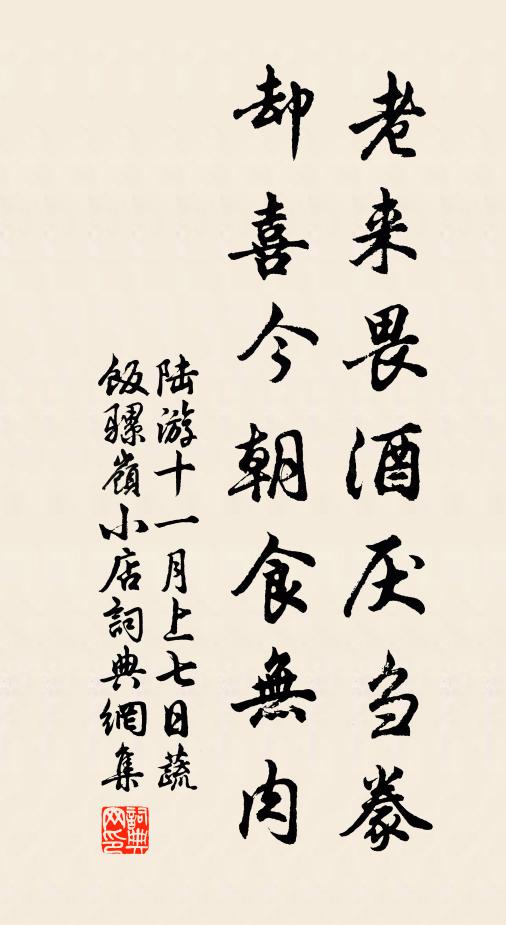 老来畏酒厌刍豢
却喜今朝食無肉
陆游十一月上七日蔬
飯騾嶺小店詞典網集
詞典网印